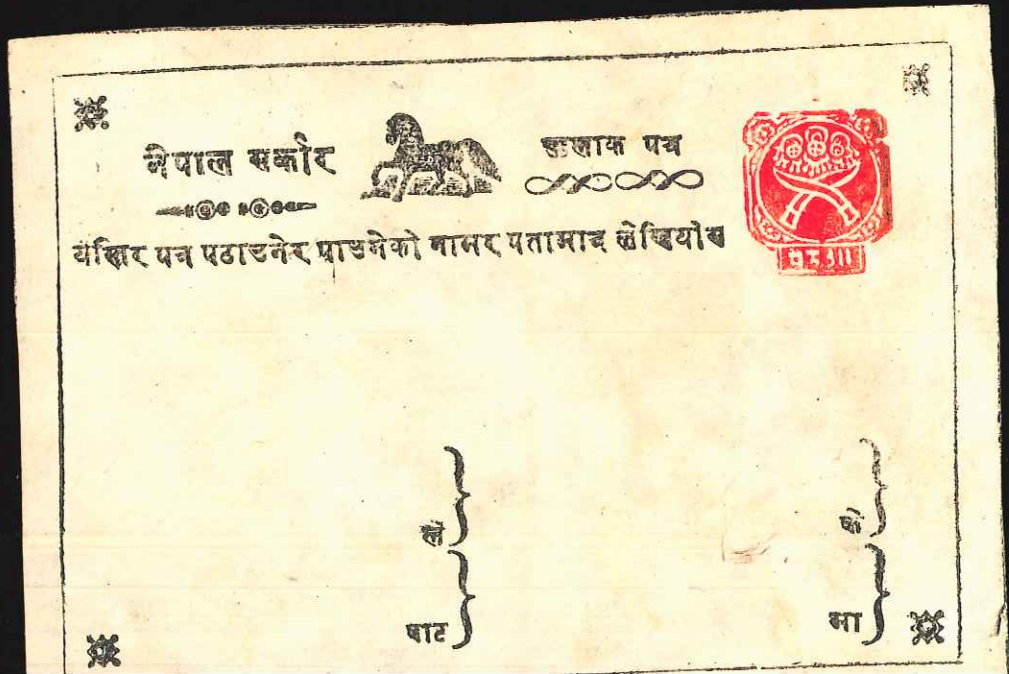 नेपाल सर्कार
हालाक पत्र
यसितर पत्र पठाउनेर पाउनेको नामर पतामात्र लेखियोस
ले
के
बाट
मा